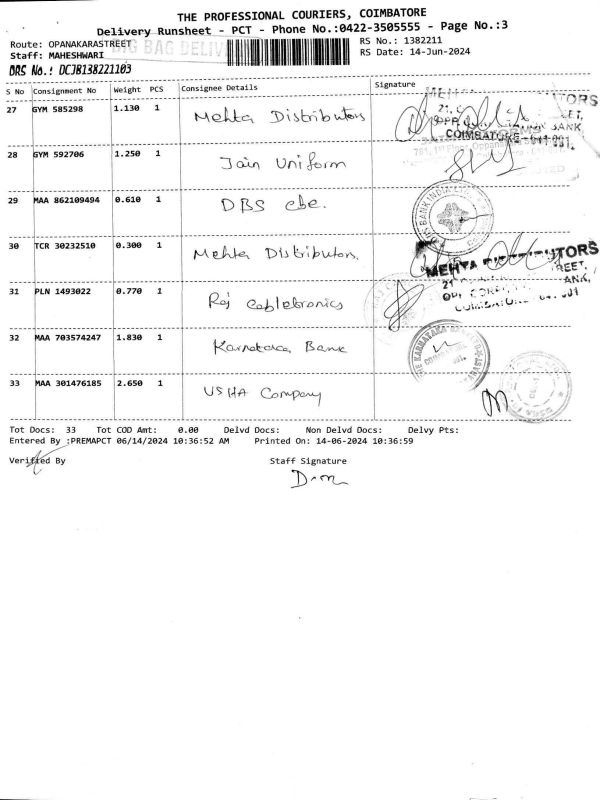 THE PROFESSIONAL COURIERS, COIMBATORE
Delivery Runsheet - PCT - Phone No.:0422-3505555 - Page No.:3
Route: OPANAKARASTREET BIG BAG DELIV RS No.: 1382211
Staff: MAHESHWARI RS Date: 14-Jun-2024
DRS No.: DCJB138221103
S No Consignment No Weight PCS Consignee Details Signature
27 GYM 585298 1.130 1 Mehta Distributors
21,
OPP. BANK,
COIMBATORE - 641 001.
28 GYM 592706 1.250 1 Jain Uniform
29 MAA 862109494 0.610 1 DBS cbe.
30 TCR 30232510 0.300 1 Mehta Distributors.
MEHTA DISTRIBUTORS
31 PLN 1493022 0.770 1 Raj cabletronics
32 MAA 703574247 1.830 1 Karnataka Bank
33 MAA 301476185 2.650 1 USHA Company
Tot Docs: 33 Tot COD Amt: 0.00 Delvd Docs: Non Delvd Docs: Delvy Pts:
Entered By :PREMAPCT 06/14/2024 10:36:52 AM Printed On: 14-06-2024 10:36:59
Verified By Staff Signature